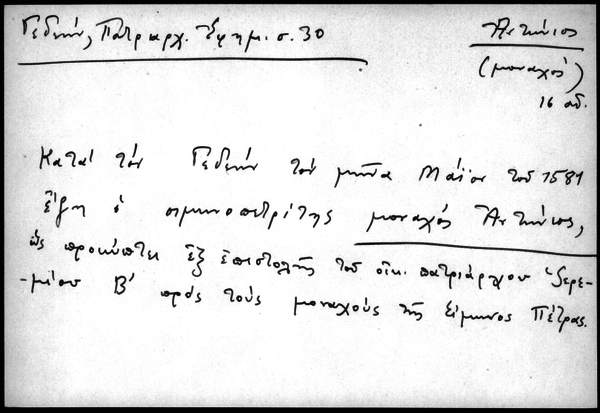 Γεδεών, Πατριαρχ. Ἐφημ. σ. 30
Ἀντώνιος
(μοναχός)
16 αἰ.
Κατὰ τὸν Γεδεὼν τὸν μῆνα Μάϊον τοῦ 1581
ἔζη ὁ σιμωνοπετρίτης μοναχός Ἀντώνιος,
ὡς προκύπτει ἐξ ἐπιστολῆς τοῦ οἰκ. πατριάρχου Ἱερε-
-μίου Β' πρός τούς μοναχούς τῆς Σίμωνος Πέτρας.